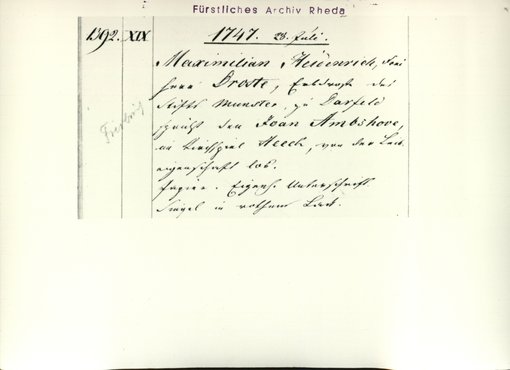 Fürstliches Archiv Rheda
1392. XIX. 1747. 28. Juli.
Maximilian Heidenreich, Frei
herr Droste, Erbdroste des
Stifts Münster, zu Darfeld
spricht den Joan Ambshove,
im Kirchspiel Heech, von der Leib
eigenschaft los.
Papier. Eigenh. Unterschrift.
Siegel in rothem Lack.